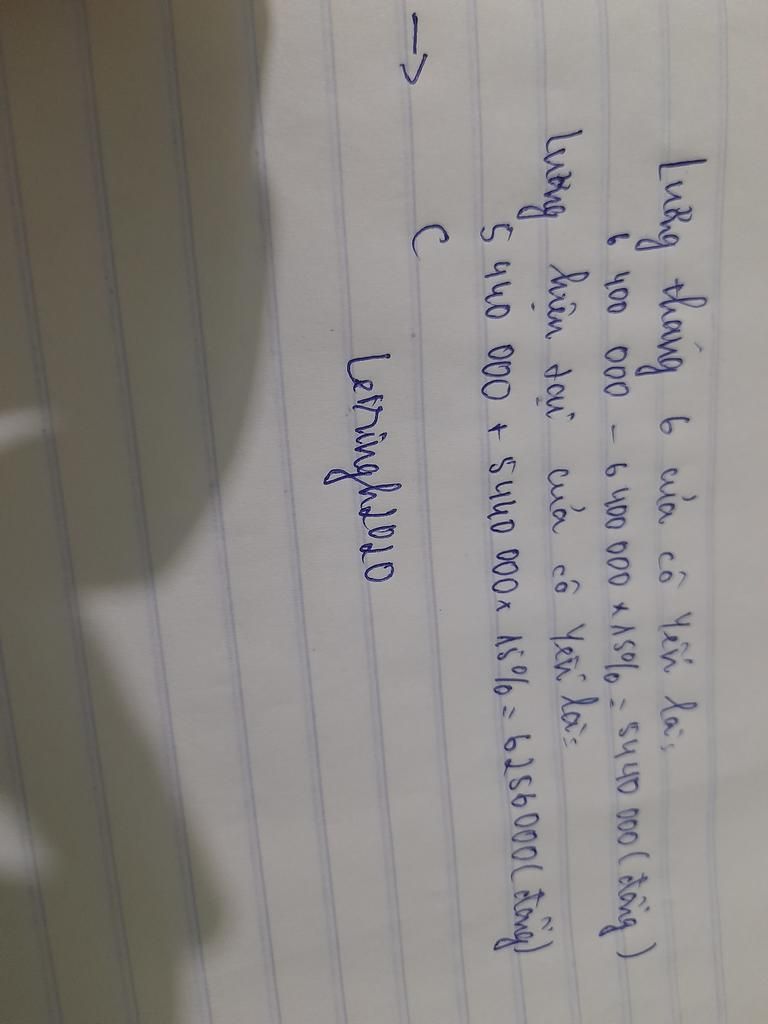 Lương tháng 6 của cô Yến là:
6 400 000 - 6 400 000 x 15% = 5440 000 (đồng)
Lương hiện tại của cô Yến là:
5 440 000 + 5440 000 x 15% = 6256000 (đồng)
→ C